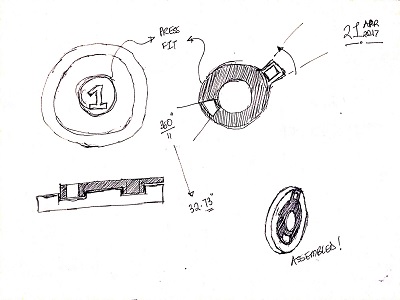 PRESS
FIT
21 APR
2017
1
360°
11
32.73°
ASSEMBLED!